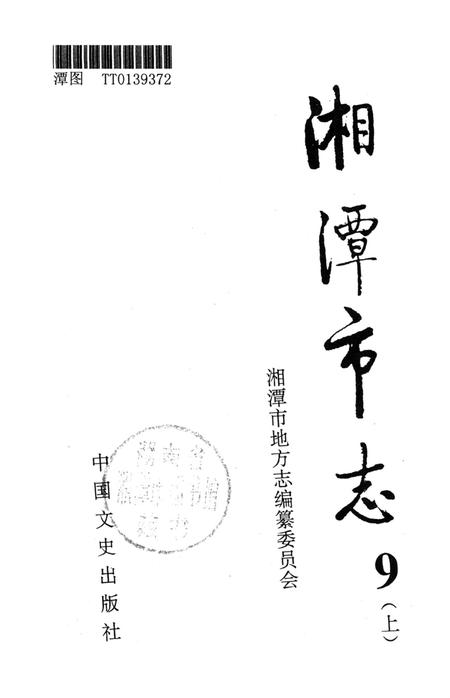 潭图 TT0139372
湘潭市志
9
（上）
湘潭市地方志编纂委员会
中国文史出版社
湖南省